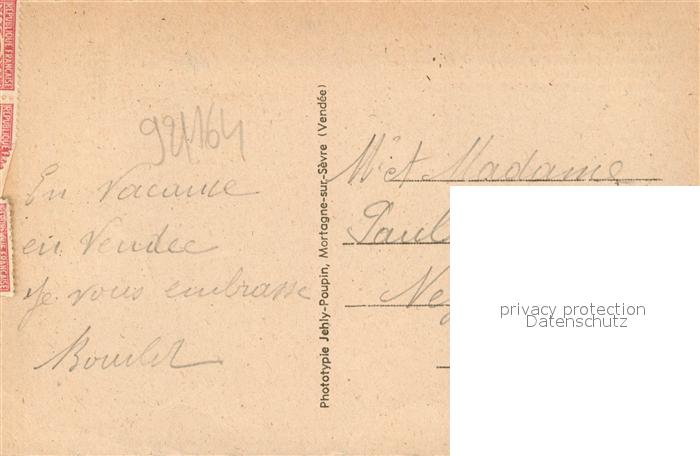 REPUBLIQUE FRANÇAISE
REPUBLIQUE FRA
98/164
En Vacance
en Vendee
Je vous embrasse
Phototypie Jehly-Poupin, Mortagne-sur-Sèvre (Vendée)
Mr et Madame
Paul
privacy protection
Datenschutz